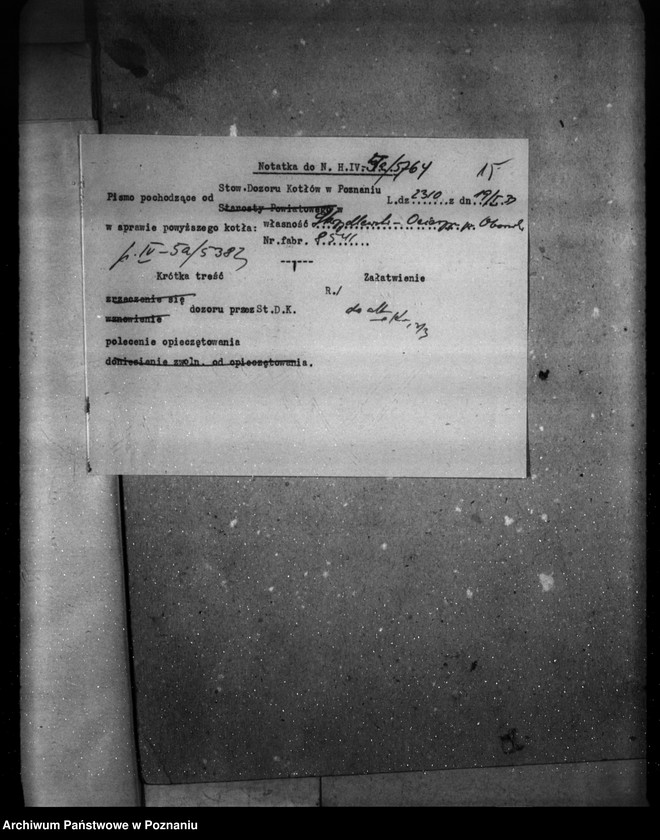 Notatka do N. H.IV: 5a/5764 15
Stow.Dozoru Kotłów w Poznaniu
Pismo pochodzące od L.dz 2310 z dn.
Starosty Powiatowego w
w sprawie powyższego kotła: własność pow. Oborniki
Nr.fabr. 8541
p. IV-5a/5382
Krótka treść Załatwienie
zrzeczenie się R./
dozoru przez St.D.K. do akt
wznowienie
polecenie opieczętowania
doniesienie zwoln. od opieczętowania.
Archiwum Państwowe w Poznaniu